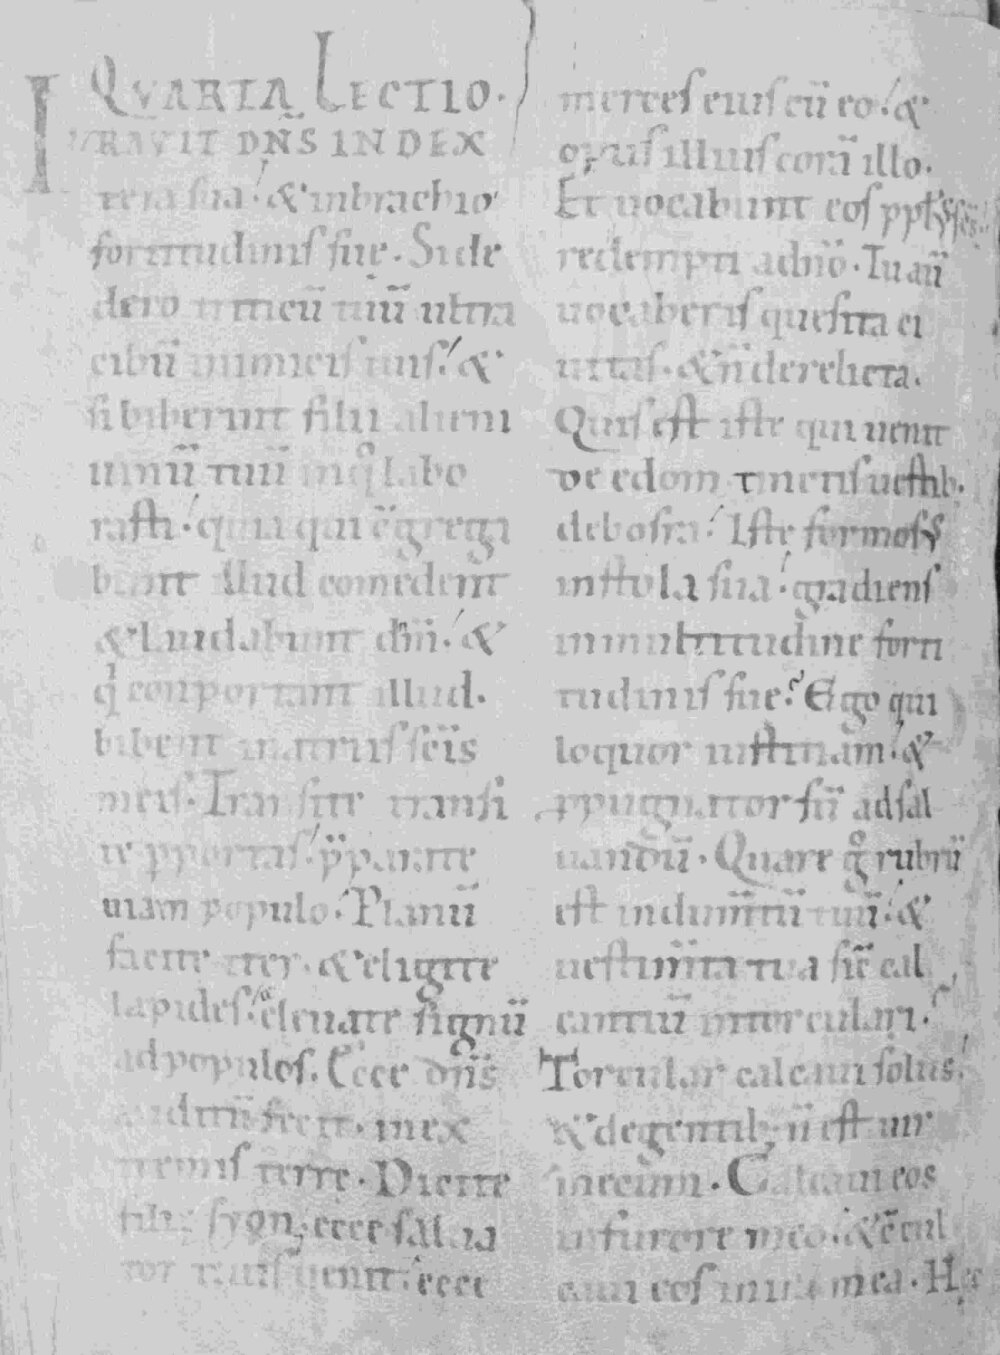 QVARTA LECTIO.
IVRAVIT DN̄S IN DEX
tera sua. & inbrachio
fortitudinis sue. Side
dero triticū tuū ultra
cibū inimicis tuis. &
si biberint filii alieni
uinū tuū inq̊ labo
rasti. quia qui c̄grega
bunt illud comedent
& laudabunt dn̄m. &
q̇ conportant illud.
bibent inatriis sc̄is
meis. Transite transi
te p portas. p̄parate
uiam populo. Planū
facite iter. & eligite
lapides. & eleuate signū
adpopulos. Ecce dn̄s
auditū fecit. inex
tremis terre. Dicite
filie syon; ecce saluа
tor tuus uenit. ecce
merces eius cū eo. &
opus illius corā illo.
Et uocabunt eos ppl's sc̄s.
redempti adn̄o. Tu aū
uocaberis quesita ci
uitas. & n̄ derelicta.
Quis est iste qui uenit
de edom. tinctis uestib.
debosra. Iste formosꝰ
instola sua. gradiens
inmultitudine forti
tudinis sue? Ego qui
loquor iustitiam. &
ppugnator sū adsal
uandū. Quare g̊ rubrū
est indum̄tū tuū. &
uestim̄ta tua sic̄ cal
cantiū intorculari?
Torcular calcaui solus.
& degentib; n̄ est uir
mecum. Calcaui eos
infurore meo. & c̄cul
caui eos inira mea. Hec